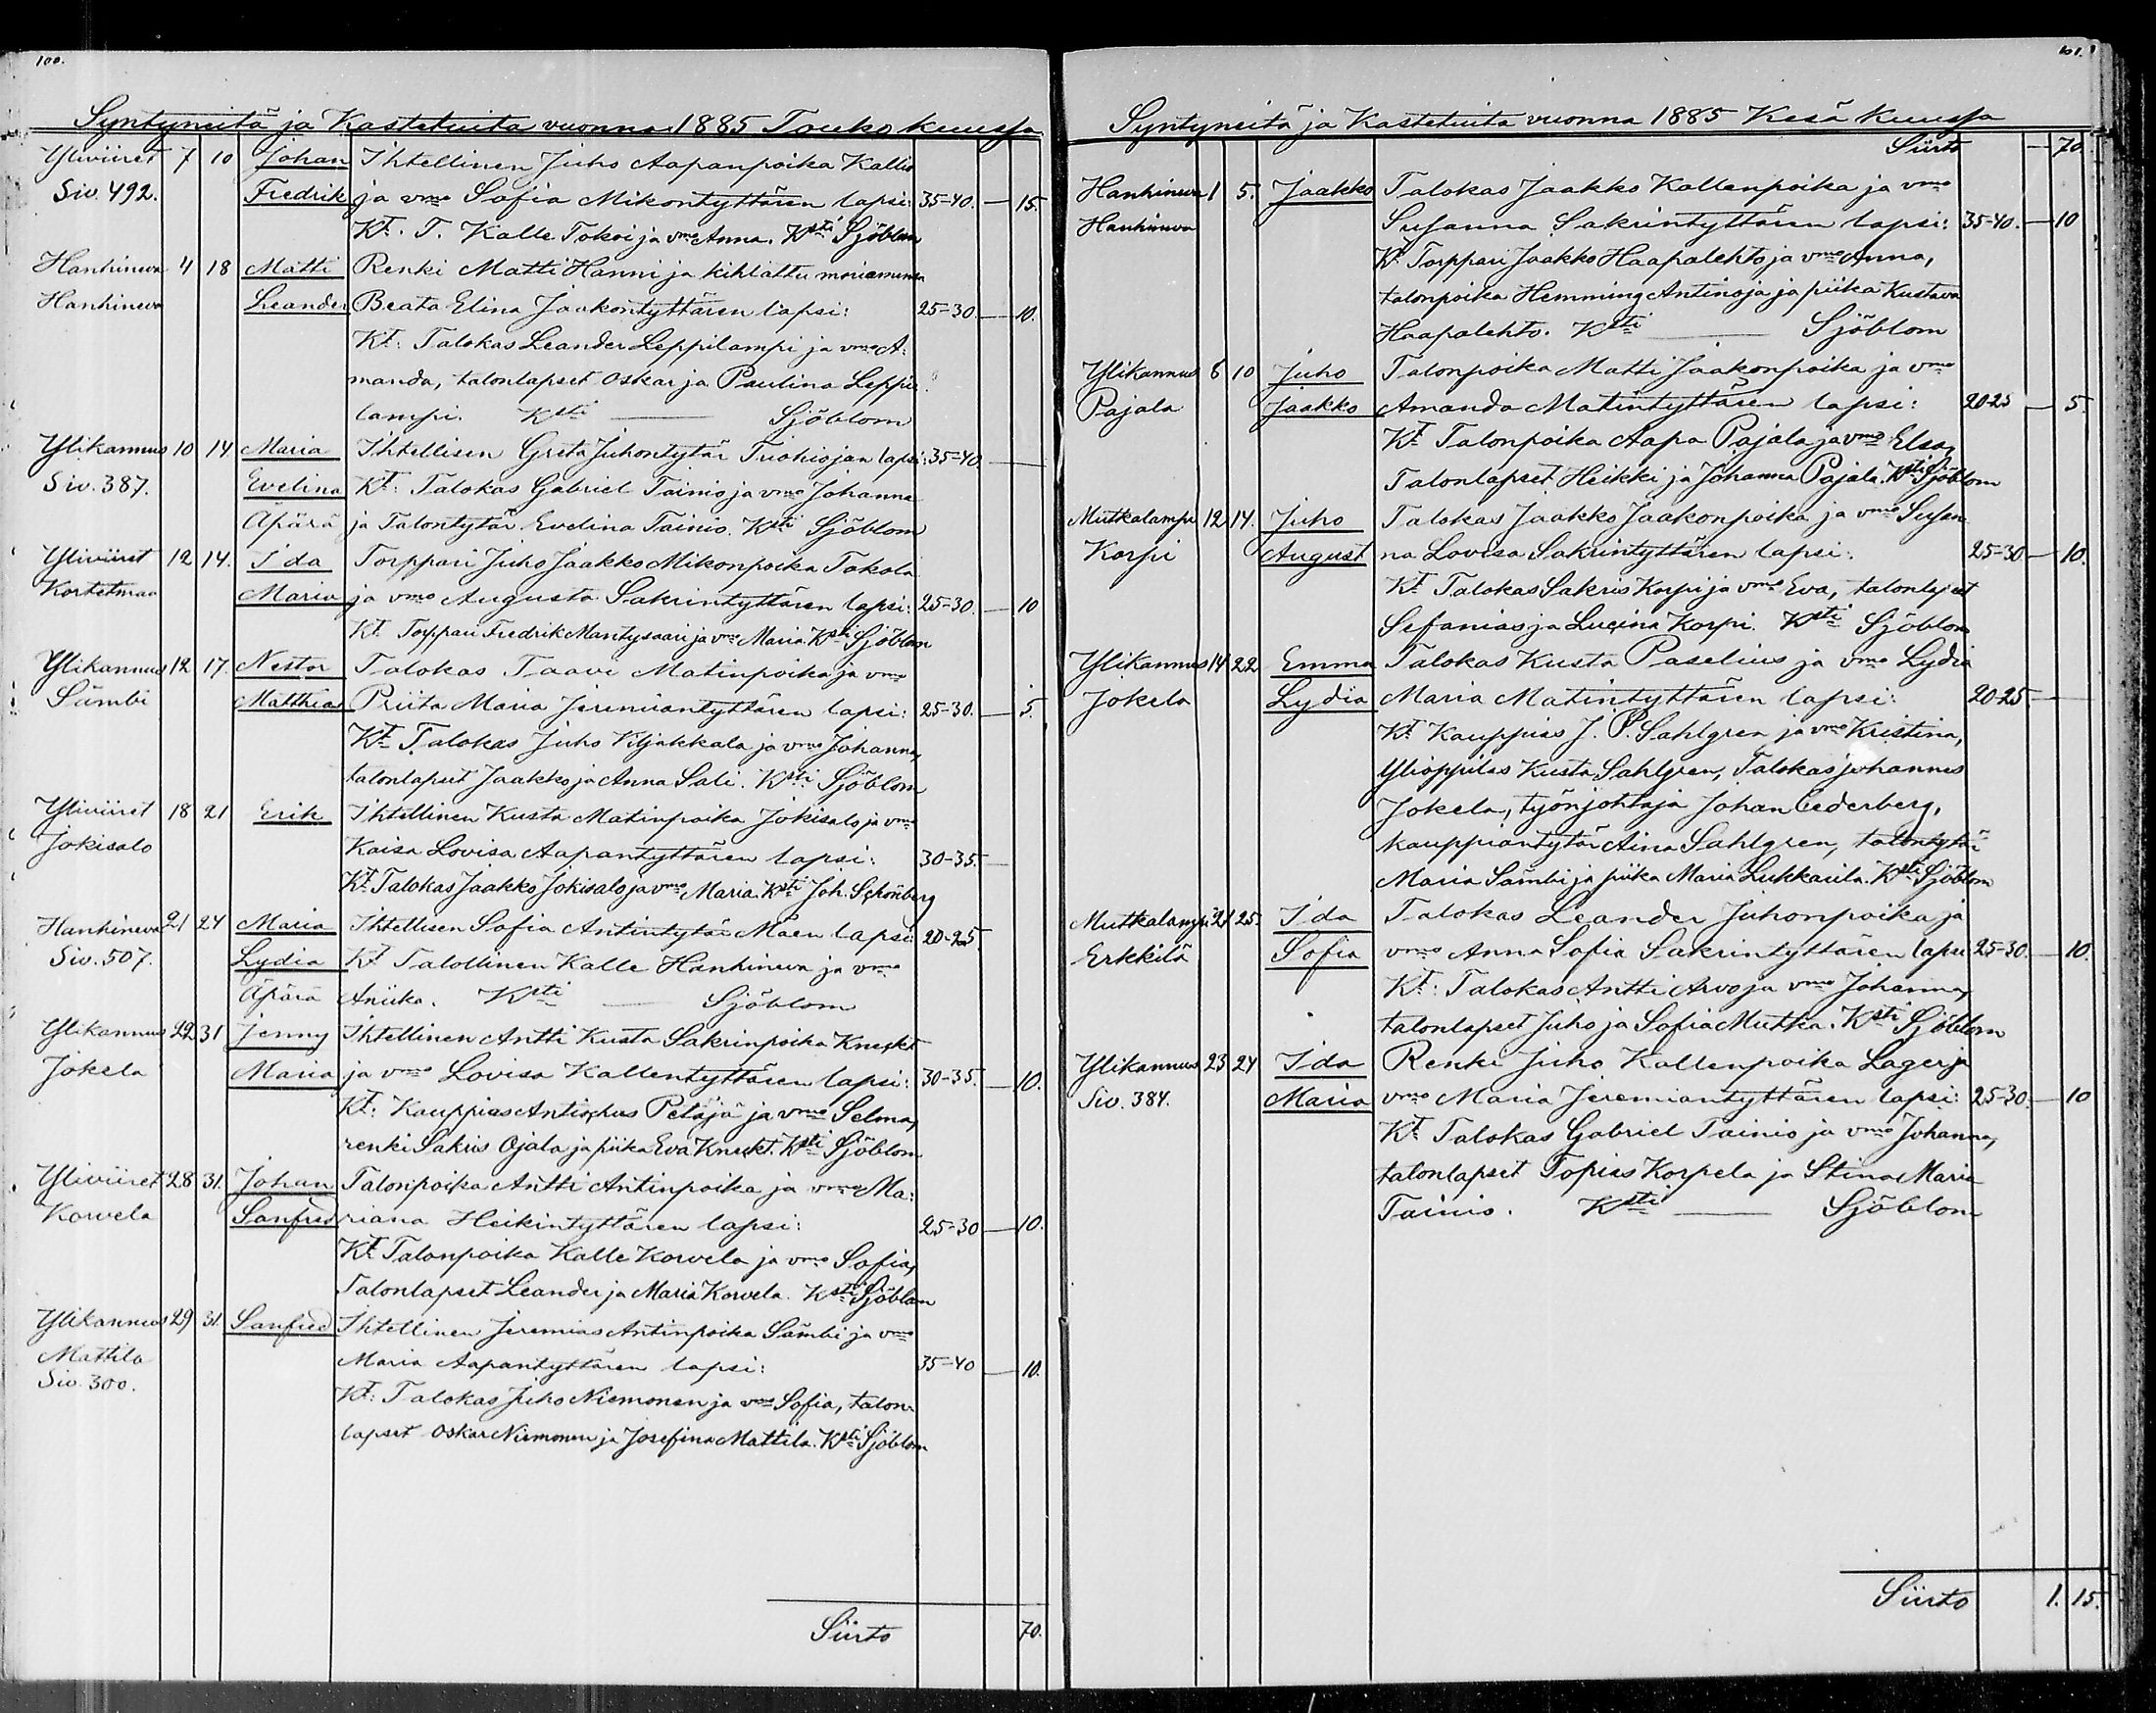 100.
Syntyneitä ja Kastetuita vuonna 1885 Touko kuussa
Yliviiret 7 10 Johan Ihtellinen Juho Aapanpoika Kallio
Siv. 492. Fredrik ja vmo Sofia Mikontyttären lapsi: 35-40. — 15.
Kt. T. Kalle Tokoi ja vmo Anna. Ksti Sjöblom
Hanhineva 4 18 Matti Renki Matti Hanni ja kihlattu morsiamensa
Hanhineva Leander Beata Elina Jaakontyttären lapsi: 25-30. — 10.
Kt: Talokas Leander Leppilampi ja vmo A:
manda, talonlapset Oskar ja Paulina Leppi:
lampi. Ksti — Sjöblom
Ylikannus 10 14 Maria Ihtellisen Greta Juhontytär Triohiojan lapsi: 35-40. —
Siv. 387. Evelina Kt: Talokas Gabriel Tainio ja vmo Johanna
Äpärä ja Talontytär Evelina Tainio. Ksti Sjöblom
Yliviiret 12 14. Ida Torppari Juho Jaakko Mikonpoika Tokola
Kortetmaa Maria ja vmo Augusta Sakrintyttären lapsi: 25-30. — 10
Kt. Torppari Fredrik Mantysaari ja vmo Maria. Ksti Sjöblom
Ylikannus 12 17. Nestor Talokas Taavi Matinpoika ja vmo
Sämbi Matthias Priita Maria Jeremiantyttären lapsi: 25-30. — 5.
Kt Talokas Juho Viljakkala ja vmo Johanna,
talonlapset Jaakko ja Anna Sali. Ksti Sjöblom
Yliviiret 18 21 Erik Ihtellinen Kusta Matinpoika Jokisalo ja vmo
Jokisalo Kaisa Lovisa Aapantyttären lapsi: 30-35. —
Kt. Talokas Jaakko Jokisalo ja vmo Maria. Ksti Joh. Schönberg
Hanhineva 21 24 Maria Ihtellisen Sofia Antintytär Mäen lapsi: 20-25
Siv. 507. Lydia Kt Talollinen Kalle Hanhineva ja vmo
Äpärä Aniika. Ksti — Sjöblom
Ylikannus 22 31 Jenny Ihtellinen Antti Kusta Sakrinpoika Knekt
Jokela Maria ja vmo Lovisa Kallentyttären lapsi: 30-35. — 10.
Kt: Kauppias Antiochus Petäjä ja vmo Selma,
renki Sakris Ojala ja piika Eva Knekt. Ksti Sjöblom
Yliviiret 28 31. Johan Talonpoika Antti Antinpoika ja vmo Ma:
Korvela Sanfred riana Heikintyttären lapsi: 25-30 — 10.
Kt. Talonpoika Kalle Korvela ja vmo Sofia,
Talonlapset Leander ja Maria Korvela. Ksti Sjöblom
Ylikannus 29 31. Sanfred Ihtellinen Jeremias Antinpoika Sämbi ja vmo
Mattila Maria Aapantyttären lapsi: 35-40 — 10.
Siv. 300.
Kt: Talokas Juho Niemonen ja vmo Sofia, talon-
lapset Oskar Niemonen ja Josefina Mattila. Ksti Sjöblom
Siirto 70.
101.
Syntyneitä ja Kastetuita vuonna 1885 Kesä kuussa
Siirto — 70.
Hanhineva 1 5. Jaakko Talokas Jaakko Kallenpoika ja vmo
Hanhineva Susanna Sakrintyttären lapsi: 35-40. — 10
Kt Torppari Jaakko Haapalehto ja vmo Anna,
talonpoika Hemming Antinoja ja piika Kustava
Haapalehto. Ksti — Sjöblom
Ylikannus 6 10 Juho Talonpoika Matti Jaakonpoika ja vmo
Pajala Jaakko Amanda Matintyttären lapsi: 20-25 — 5.
Kt Talonpoika Aapa Pajala ja vmo Elsa,
Talonlapset Heikki ja Johanna Pajala. Ksti Sjöblom
Mutkalampi 12 14. Juho Talokas Jaakko Jaakonpoika ja vmo Susan
Korpi August na Lovisa Sakrintyttären lapsi: 25-30 — 10.
Kt Talokas Sakris Korpi ja vmo Eva, talonlapset
Sefanias ja Lucina Korpi. Ksti Sjöblom
Ylikannus 14 22 Emma Talokas Kusta Paselius ja vmo Lydia
Jokela Lydia Maria Matintyttären lapsi: 20-25 —
Kt Kauppias J. P. Sahlgren ja vmo Kristina,
Ylioppilas Kusta Sahlgren, Talokas Johannes
Jokela, työnjohtaja Johan Cederberg,
kauppiantytär Aina Sahlgren, talontytär
Maria Sämbi ja piika Maria Lukkarila. Ksti Sjöblom
Mutkalampi 21 25. Ida Talokas Leander Juhonpoika ja
Erkkilä Sofia vmo Anna Sofia Sakrintyttären lapsi 25-30. — 10.
Kt: Talokas Antti Arvo ja vmo Johanna,
talonlapset Juho ja Sofia Mutka. Ksti Sjöblom
Ylikannus 23 24 Ida Renki Juho Kallenpoika Lager ja
Siv. 384. Maria vmo Maria Jeremiantyttären lapsi: 25-30. — 10
Kt Talokas Gabriel Tainio ja vmo Johanna,
talonlapset Topias Korpela ja Stina Maria
Tainio. Ksti — Sjöblom
Siirto 1. 15.